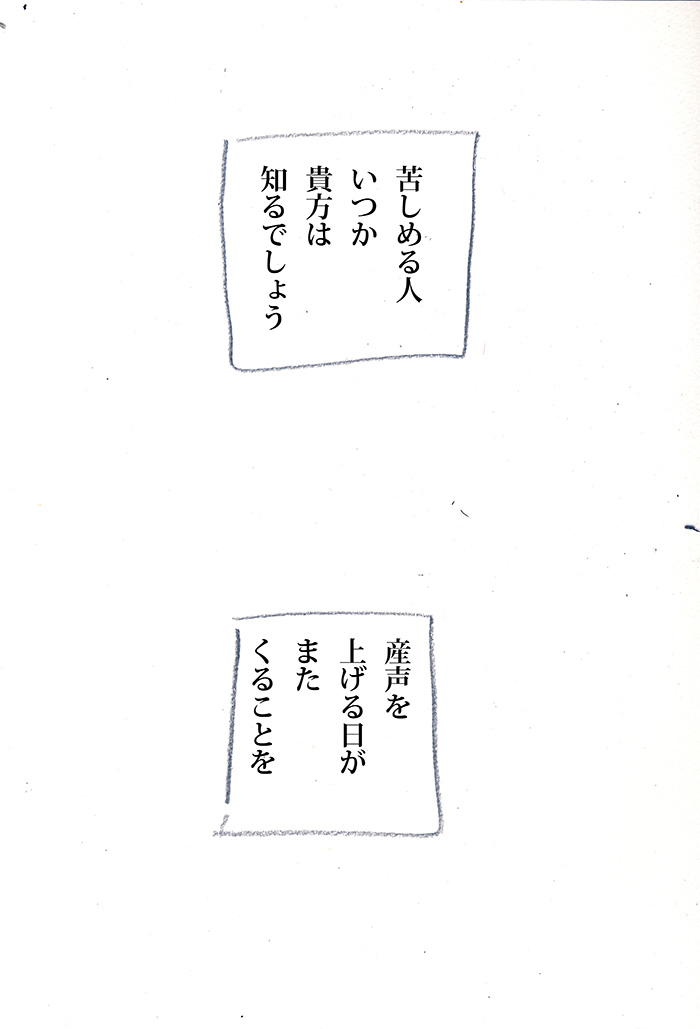 苦しめる人
いつか
貴方は
知るでしょう
産声を
上げる日が
また
くることを